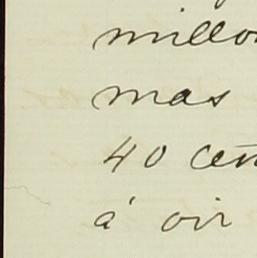 millo
mas
40 cen
á oir